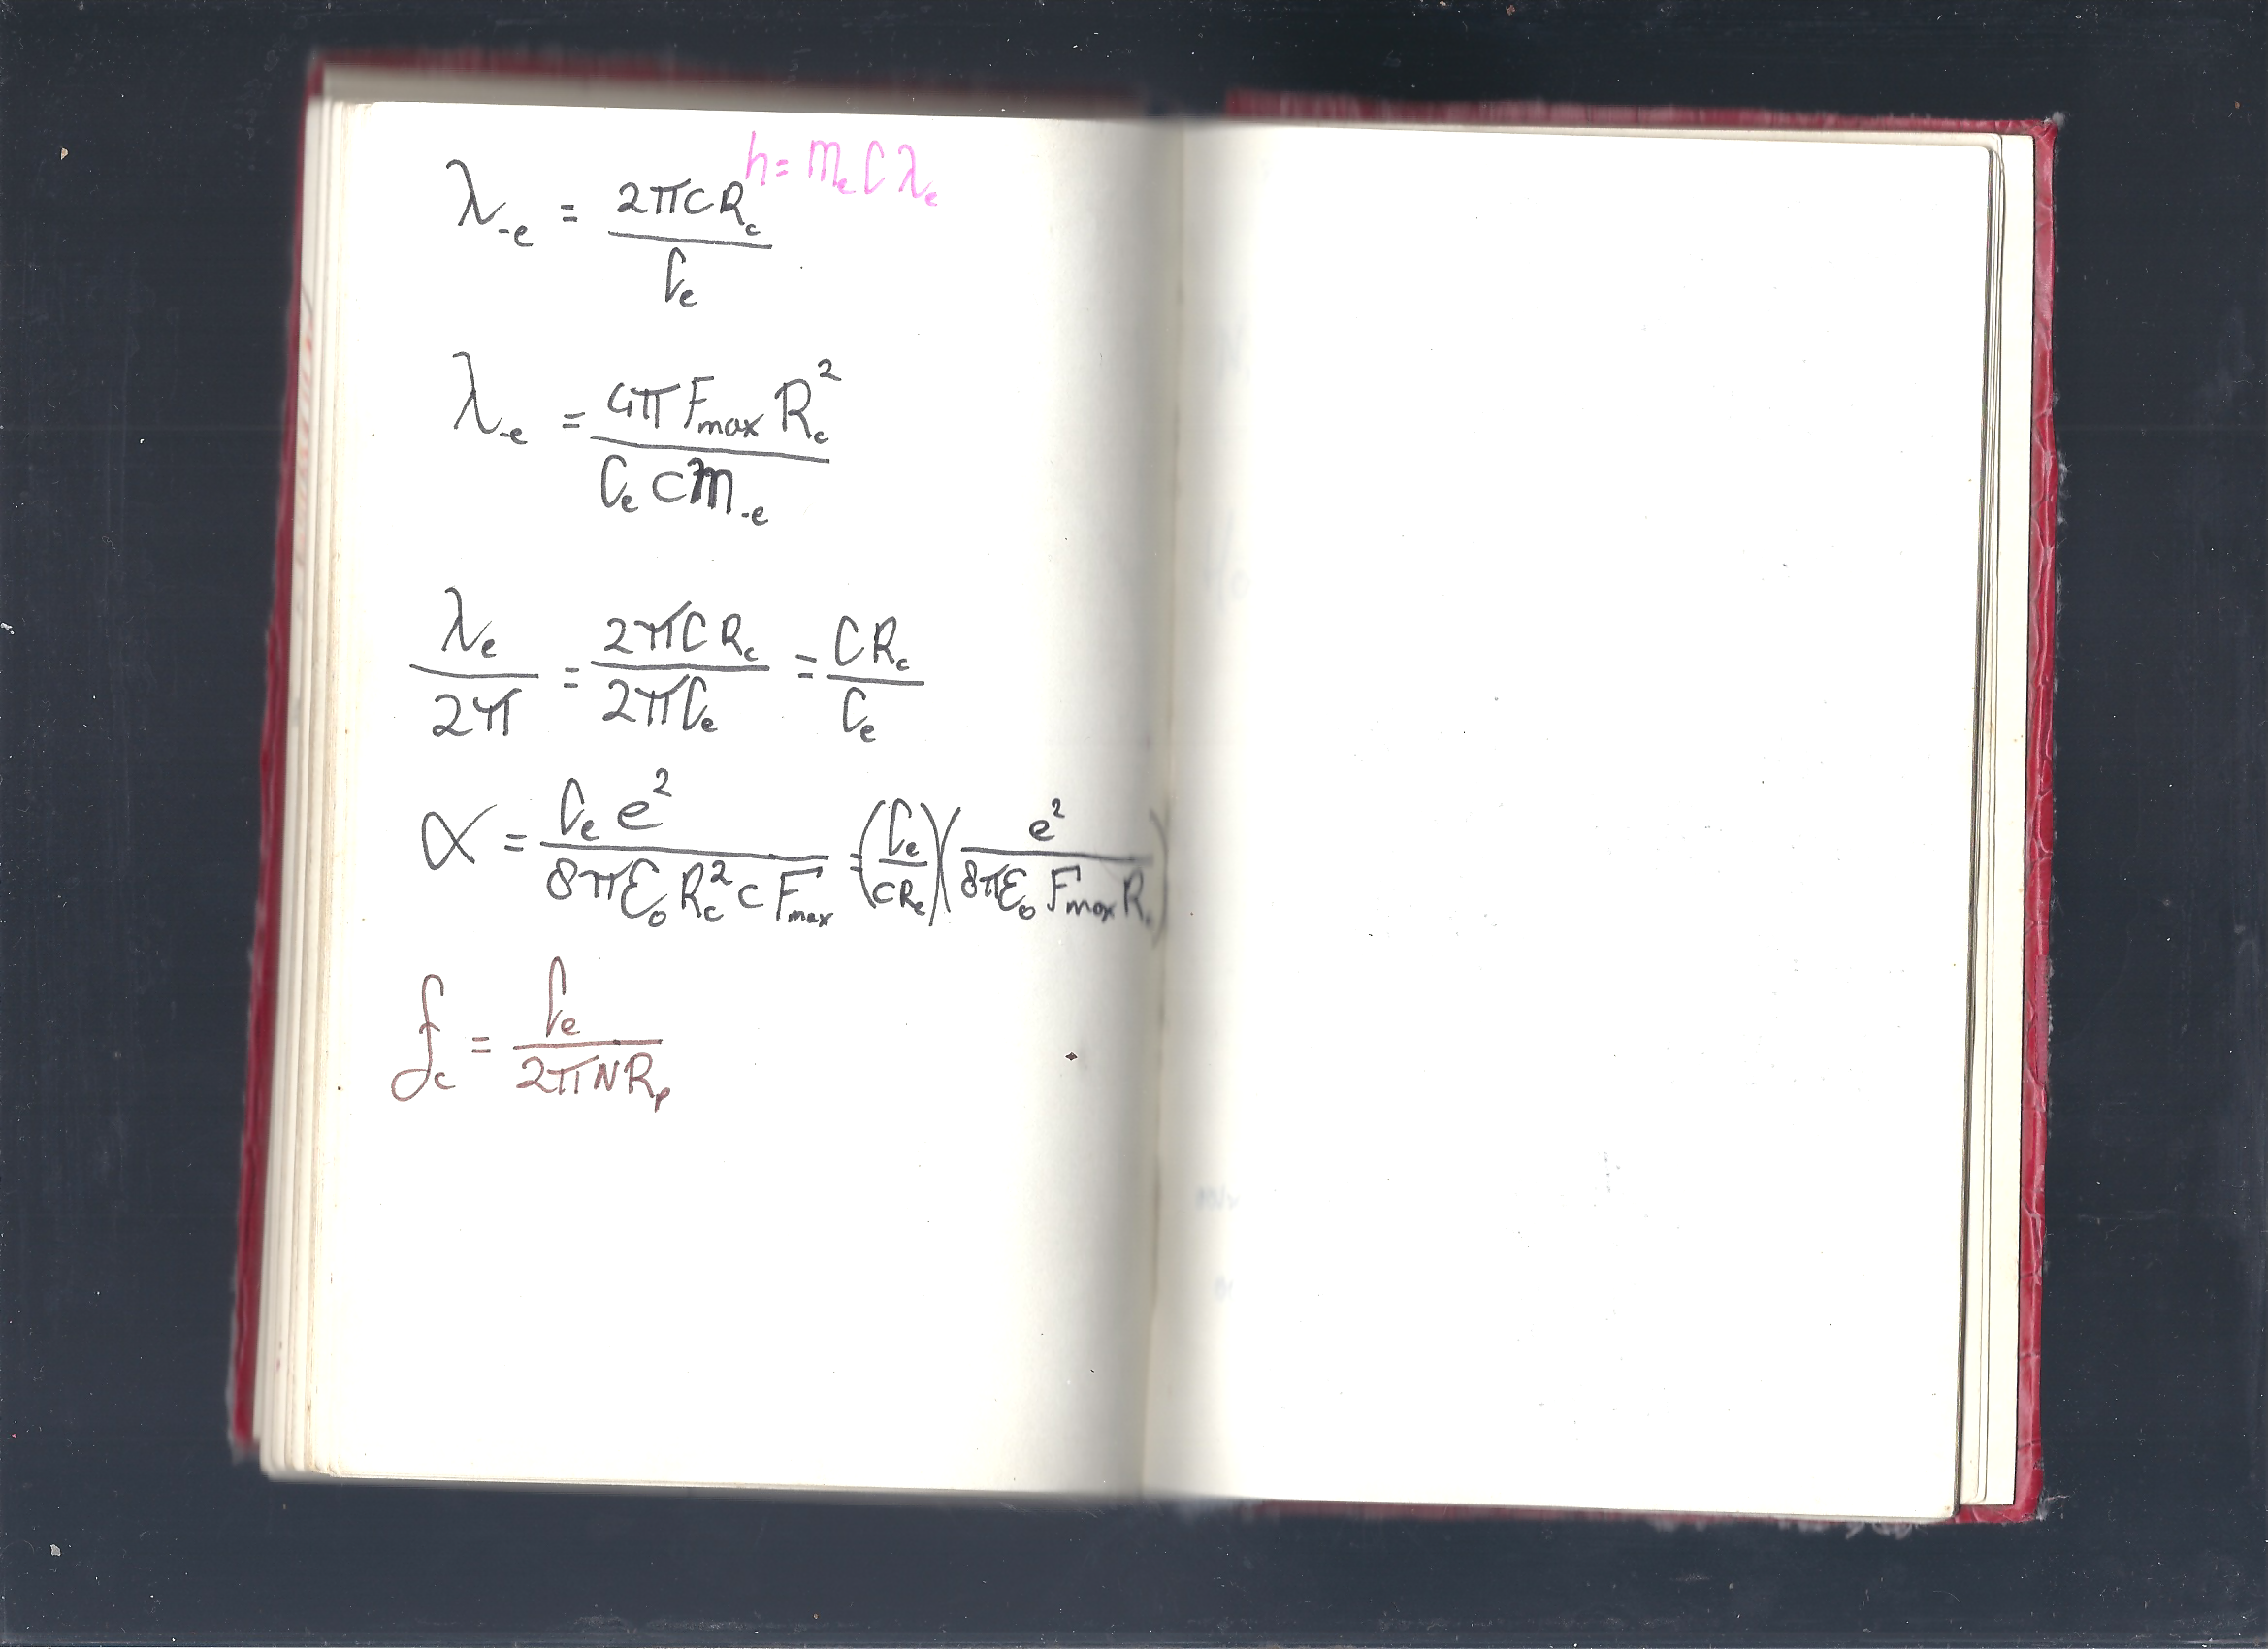 h = m_e C λ_e
λ_-e = 2πCR_c / C_e
λ_-e = 4π F_max R_c² / C_e c m_-e
λ_e / 2π = 2πCR_c / 2πC_e = CR_c / C_e
α = C_e e² / 8πε_0 R_c² c F_max = (C_e / cR_c)(e² / 8πε_0 F_max R_c)
f_c = C_e / 2πNR_p